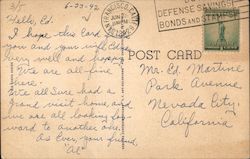 3/5
6-23-42
Hello, Ed:
I hope this Card finds
you and your wife Edna
very well and happy.
We are all-fine
here.
Ente all Sure had a
Grand visit home and
we are all looking for-
ward to another one.
As Ever your friend,
"Al"
SAN FRANCISCO, CALIF.
JUN 2
PM
1942
BUY
DEFENSE SAVINGS
BONDS AND STAMPS
POST CARD
Mr. Ed. Martine
Park Avenue
Nevada City
California